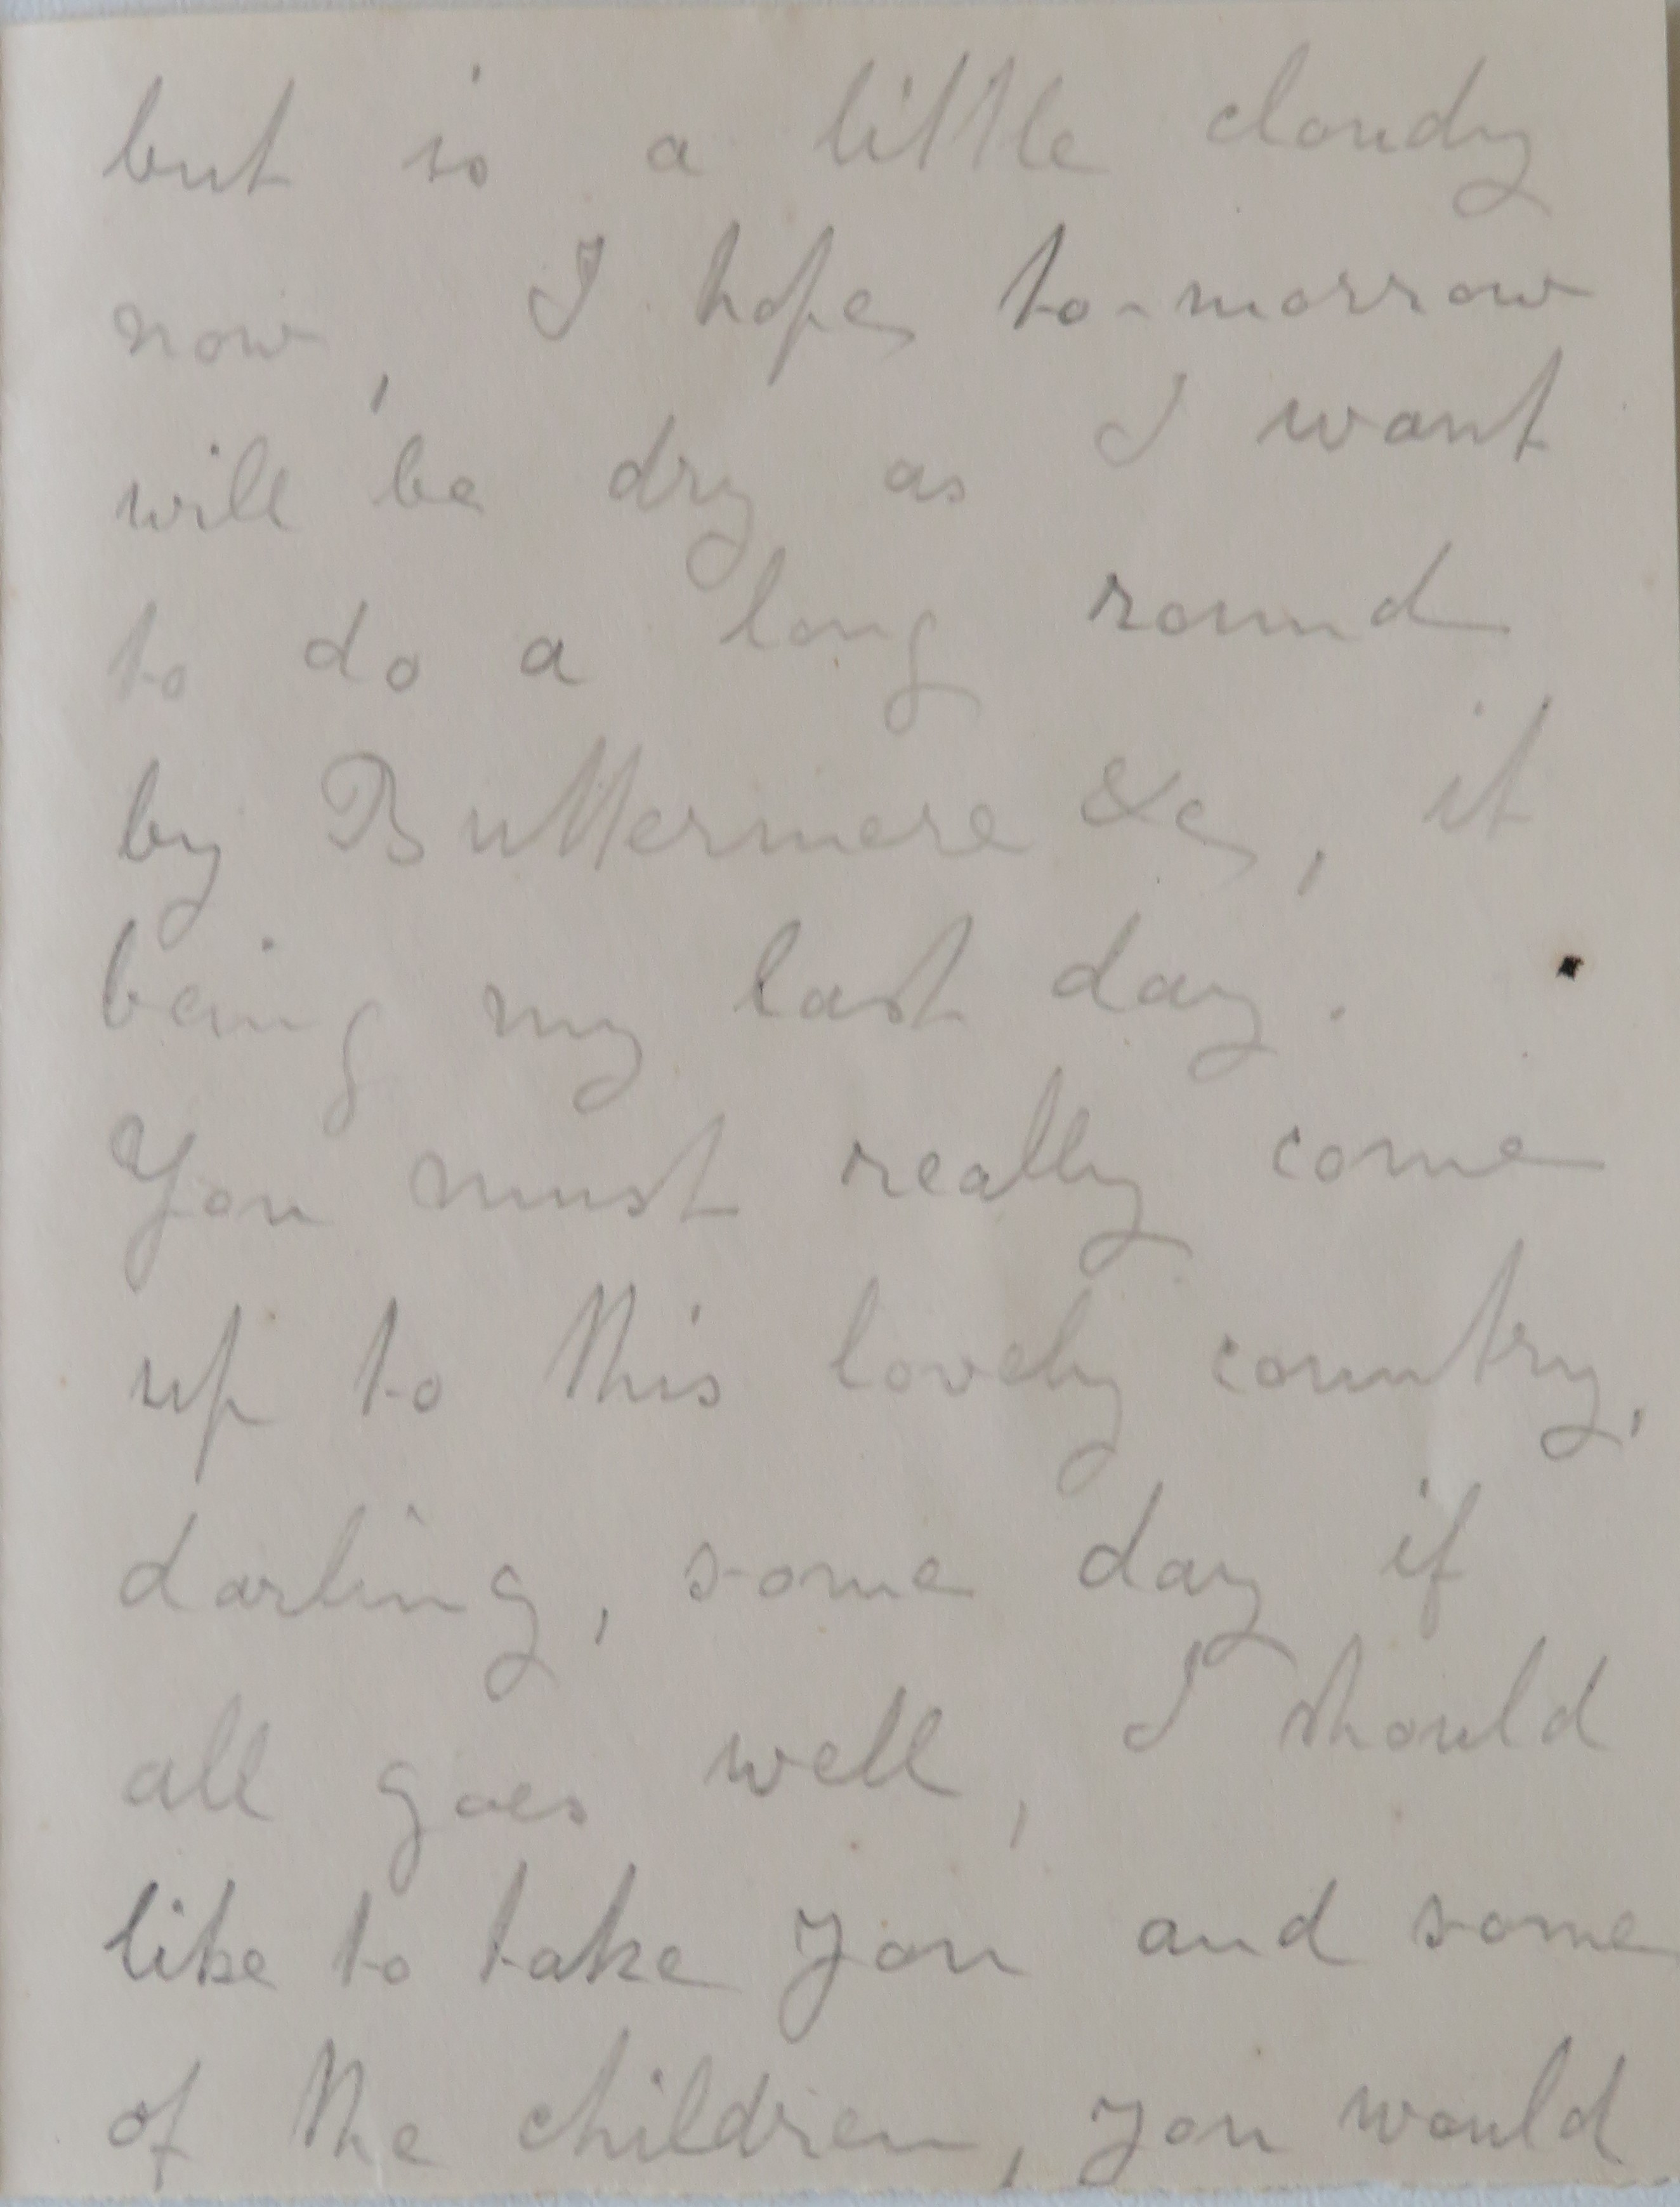 but is a little cloudy
now, I hope to-morrow
will be dry as I want
to do a long round
by Buttermere &c, it
being my last day.
You must really come
up to this lovely country,
darling, some day if
all goes well, I should
like to take you and some
of the children, you would